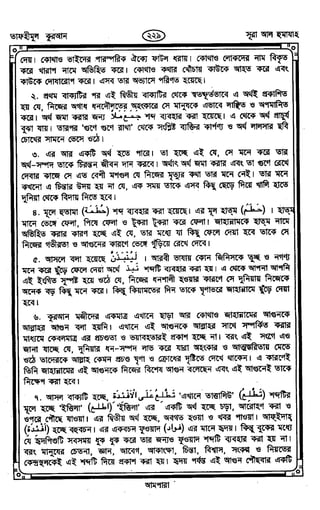 তাফহীমুল কুরআন
২২৯
সূরা আল হুমাযাহ
দেয়। কোথাও ভাইদের পারস্পরিক ঐক্যে ফাটল ধরায়। কোথাও লোকদের নাম বিকৃত
করে খারাপ নামে অভিহিত করে। কোথাও কথার খোঁচায় কাউকে আহত করে এবং
কাউকে দোষারোপ করে। এসব তার অভ্যাসে পরিণত হয়েছে।
২. প্রথম বাক্যটির পর এই দ্বিতীয় বাক্যটির থেকে স্বতস্ফূর্তভাবে এ অর্থই প্রকাশিত
হয় যে, নিজের অগাধ ধনদৌলতের অহংকারে সে মানুষকে এভাবে লাঞ্ছিত ও অপমানিত
করে। অর্থ জমা করার জন্য جَمَعَ مَالًا শব্দ ব্যবহার করা হয়েছে। এ থেকে অর্থ প্রাচুর্য
বুঝা যায়। তারপর 'গুণে গুণে রাখা' থেকে সংশ্লিষ্ট ব্যক্তির কার্পণ্য ও অর্থ লালসার ছবি
চোখের সামনে ভেসে ওঠে।
৩. এর আর একটি অর্থ হতে পারে। তা হচ্ছে এই যে, সে মনে করে তার
অর্থ-সম্পদ তাকে চিরন্তন জীবন দান করবে। অর্থাৎ অর্থ জমা করার এবং তা গুণে রেখে
দেবার কাজে সে এত বেশী মশগুল যে নিজের মৃত্যুর কথা তার মনে নেই। তার মনে
কখনো এ চিন্তার উদয় হয় না যে, এক সময় তাকে এসব কিছু ছেড়ে দিয়ে খালি হাতে
দুনিয়া থেকে বিদায় নিতে হবে।
৪. মূলে হুতামা (حُطَمَة) শব্দ ব্যবহার করা হয়েছে। এর মূল হাত্‌ম (حَطْم)। হাত্‌ম
মানে ভেঙ্গে ফেলা, পিষে ফেলা ও টুকরা টুকরা করে ফেলা। জাহান্নামকে হাত্‌ম নামে
অভিহিত করার কারণ হচ্ছে এই যে, তার মধ্যে যা কিছু ফেলে দেয়া হবে তাকে সে
নিজের গভীরতা ও আগুনের কারণে ভেঙ্গে গুঁড়িয়ে রেখে দেবে।
৫. আসলে বলা হয়েছে لَيُنْبَذَنَّ। আরবী ভাষায় কোন জিনিসকে তুচ্ছ ও নগণ্য
মনে করে ছুঁড়ে ফেলে দেয়া অর্থে نَبْذ শব্দটি ব্যবহার করা হয়। এ থেকে আপনা আপনি
এই ইংগিত সুস্পষ্ট হয়ে ওঠে যে, নিজের ধনশালী হওয়ার কারণে সে দুনিয়ায় নিজেকে
অনেক বড় কিছু মনে করে। কিন্তু কিয়ামতের দিন তাকে ঘৃণাভরে জাহান্নামে ছুঁড়ে দেয়া
হবে।
৬. কুরআন মজীদের একমাত্র এখানে ছাড়া আর কোথাও জাহান্নামের আগুনকে
আল্লাহর আগুন বলা হয়নি। এখানে এই আগুনকে আল্লাহর সাথে সম্পর্কিত করার
মাধ্যমে কেবলমাত্র এর প্রচণ্ডতা ও ভয়াবহতারই প্রকাশ হচ্ছে না। বরং এই সংগে এও
জানা যাচ্ছে যে, দুনিয়ার ধন-সম্পদ লাভ করে যারা অহংকার ও আত্মম্ভরিতায় মেতে
ওঠে তাদেরকে আল্লাহ কেমন প্রচণ্ড ঘৃণা ও ক্রোধের দৃষ্টিতে দেখে থাকেন। এ কারণেই
তিনি জাহান্নামের এই আগুনকে নিজের বিশেষ আগুন বলেছেন এবং এই আগুনেই তাকে
নিক্ষেপ করা হবে।
৭. আসল বাক্যটি হচ্ছে, تَطَّلِعُ عَلَى الْأَفْئِدَةِ এখানে তাত্তালিউ' (تَطَّلِعُ) শব্দটির
মূলে হচ্ছে 'ইত্তিলা' (اطلاع) 'ইত্তিলা' এর একটি অর্থ হচ্ছে চড়া, আরোহণ করা ও
ওপরে পৌঁছে যাওয়া। এর দ্বিতীয় অর্থ হচ্ছে, অবগত হওয়া ও খবর পাওয়া। আফ্‌ইদাহ্‌
(أَفْئِدَة) হচ্ছে বহুবচন। এর একবচন ফুওয়াদ (فُؤَاد) এর মানে হৃদয়। কিন্তু বুকের মধ্যে
যে হৃদপিণ্ডটি সবসময় ধুক ধুক করে তার জন্যও ফুওয়াদ শব্দটি ব্যবহার করা হয় না।
বরং মানুষের চেতনা, জ্ঞান, আবেগ, আকাংক্ষা, চিন্তা, বিশ্বাস, সংকল্প ও নিয়তের
কেন্দ্রস্থলকেই এই শব্দটি দিয়ে প্রকাশ করা হয়। হৃদয় পর্যন্ত এই আগুন পৌঁছবার একটি
আমপারা